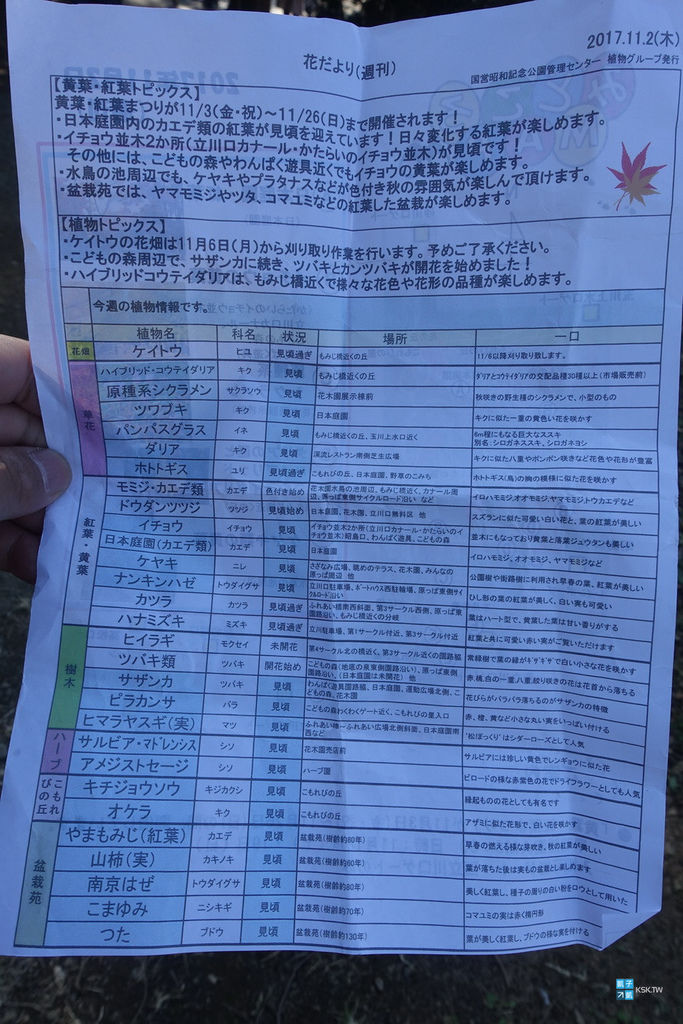 2017.11.2(木)
花だより(週刊)
国営昭和記念公園管理センター 植物グループ発行
【黄葉・紅葉トピックス】
黄葉・紅葉まつりが11/3(金・祝)~11/26(日)まで開催されます!
・日本庭園内のカエデ類の紅葉が見頃を迎えています!日々変化する紅葉が楽しめます。
・イチョウ並木2か所(立川口カナール・かたらいのイチョウ並木)が見頃です!
その他には、こどもの森やわんぱく遊具近くでもイチョウの黄葉が楽しめます。
・水鳥の池周辺でも、ケヤキやプラタナスなどが色付き秋の雰囲気が楽しんで頂けます。
・盆栽苑では、ヤマモミジやツタ、コマユミなどの紅葉した盆栽が楽しめます。
【植物トピックス】
・ケイトウの花畑は11月6日(月)から刈り取り作業を行います。予めご了承ください。
・こどもの森周辺で、サザンカに続き、ツバキとカンツバキが開花を始めました!
・ハイブリッドコウテイダリアは、もみじ橋近くで様々な花色や花形の品種が楽しめます。
今週の植物情報です。
植物名 科名 状況 場所 一口
花畑 ケイトウ ヒユ 見頃過ぎ もみじ橋近くの丘 11/6以降刈り取り致します。
草花
ハイブリッドコウテイダリア キク 見頃 もみじ橋近くの丘 ダリアとコウテイダリアの交配品種30種以上(市場販売前)
原種系シクラメン サクラソウ 見頃 花木園展示棟前 秋咲きの野生種のシクラメンで、小型のもの
ツワブキ キク 見頃 日本庭園 キクに似た一重の黄色い花を咲かす
パンパスグラス イネ 見頃 もみじ橋近くの丘、玉川上水口近く 6m程にもなる巨大なススキ
別名:シロガネススキ、シロガネヨシ
ダリア キク 見頃 渓流レストラン南側芝生広場 キクに似た八重やポンポン咲きなど花色や花形が豊富
ホトトギス ユリ 見頃過ぎ こもれびの丘、日本庭園、野草のこみち ホトトギス(鳥)の胸の模様に似た花を咲かす
紅葉・黄葉
モミジ・カエデ類 カエデ 色付き始め 花木園水鳥の池周辺、もみじ橋近く、カナール周辺、原っぱ東側サイクルロード沿い など イロハモミジ,オオモミジ,ヤマモミジ,トウカエデなど
ドウダンツツジ ツツジ 見頃始め 日本庭園、花木園、立川口無料区 他 スズランに似た可愛い白い花と、葉の紅葉が美しい
イチョウ イチョウ 見頃 イチョウ並木2か所(立川口カナール・かたらいのイチョウ並木)昭島口、わんぱく遊具、こどもの森 並木にもなっており黄葉と落葉ジュウタンも美しい
日本庭園(カエデ類) カエデ 見頃 日本庭園 イロハモミジ、オオモミジ、ヤマモミジなど
ケヤキ ニレ 見頃 さざなみ広場、眺めのテラス、花木園、みんなの原っぱ周辺 他 公園樹や街路樹に利用され早春の葉、紅葉が美しい
ナンキンハゼ トウダイグサ 見頃 立川口駐車場、ボートハウス西駐輪場、原っぱ東側サイクルロード沿い ひし形の葉の紅葉が美しく、白い実も可愛い
カツラ カツラ 見頃過ぎ ふれあい橋南西斜面、第3サークル西側、原っぱ東園路沿い、もみじ橋の分岐 葉はハート型で、黄葉した葉は甘い香りがする
ハナミズキ ミズキ 見頃過ぎ 立川駐車場、第1サークル付近、第3サークル付近 紅葉と共に可愛い赤い実がご覧いただけます
樹木
ヒイラギ モクセイ 未開花 第4サークル北の橋近く、第3サークル近くの園路脇 常緑樹で葉の縁がギザギザで白い小さな花を咲かす
ツバキ類 ツバキ 開花始め こどもの森(地底の泉東側園路沿い)、原っぱ東側園路沿い、(日本庭園は未開花) 他 赤、桃、白の一重、八重、絞り咲きの花は花首から落ちる
サザンカ ツバキ 見頃 わんぱく遊具園路脇、日本庭園、運動広場北側、こどもの森、花木園 花びらがバラバラ落ちるのがサザンカの特徴
ピラカンサ バラ 見頃 こどもの森わくわくゲート近く、こもれびの里入口 赤、橙、黄など小さな丸い実をいっぱい付ける
ヒマラヤスギ(実) マツ 見頃 ふれあい橋~ふれあい広場北側斜面、日本庭園南西など "松ぼっくり"はシダーローズとして人気
ハーブ
サルビア・マドレンシス シソ 見頃 花木園売店前 サルビアには珍しい黄色でレンギョウに似た花
アメジストセージ シソ 見頃 ハーブ園 ビロードの様な赤紫色の花でドライフラワーとしても人気
こもれびの丘
キチジョウソウ キジカクシ 見頃 こもれびの丘 縁起ものの花としても有名です
オケラ キク 見頃 こもれびの丘 アザミに似た花形で、白い花を咲かす
盆栽苑
やまもみじ(紅葉) カエデ 見頃 盆栽苑(樹齢約80年) 早春の燃える様な芽吹き、秋の紅葉が美しい
山柿(実) カキノキ 見頃 盆栽苑(樹齢約60年) 葉が落ちた後は実もの盆栽とし楽しめます
南京はぜ トウダイグサ 見頃 盆栽苑(樹齢約80年) 美しく紅葉し、種子の周りの白い粉をロウとして用いた
こまゆみ ニシキギ 見頃 盆栽苑(樹齢約70年) コマユミの実は赤く楕円形
つた ブドウ 見頃 盆栽苑(樹齢約130年) 葉が美しく紅葉し、ブドウの様な実を付ける
KSK.TW